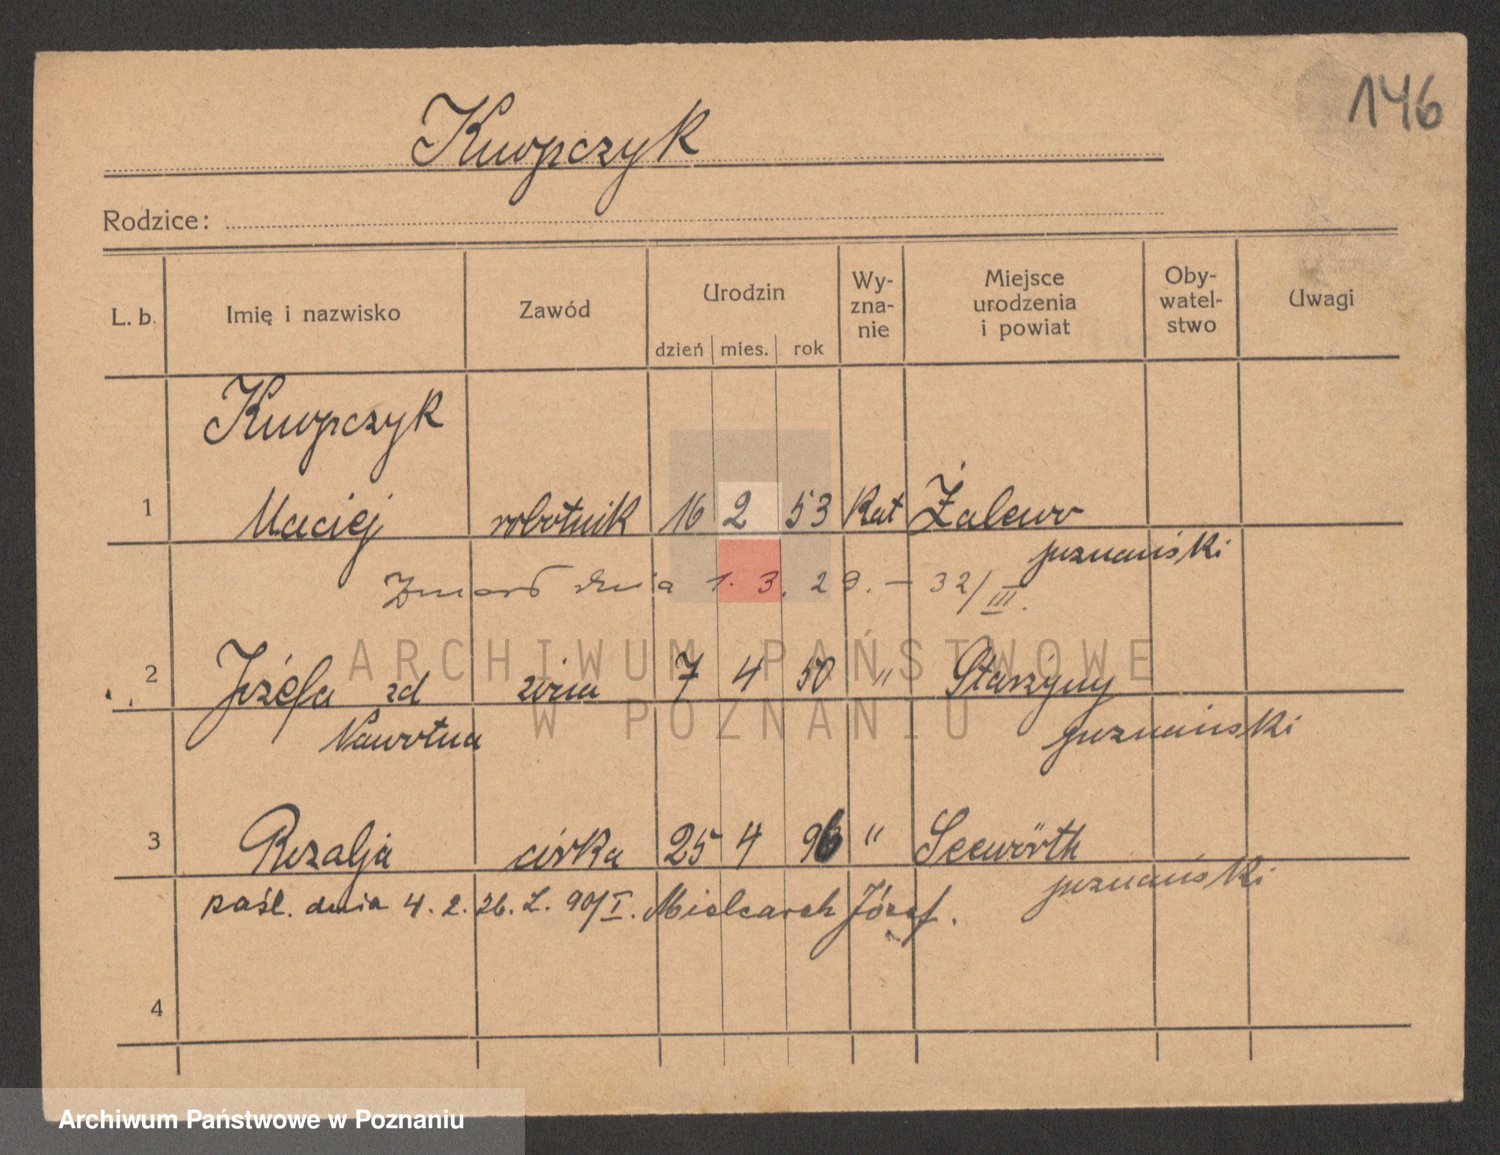 146
Knopczyk
Rodzice:
L. b. Imię i nazwisko Zawód Urodzin dzień mies. rok Wy-zna-nie Miejsce urodzenia i powiat Oby-watel-stwo Uwagi
Knopczyk
1 Maciej robotnik 16 2 53 Kat Żalewo
poznański
Zmarł dnia 1. 3. 29. – 32/III.
2 Józefa zd żona 7 4 50 " Starzyny
Nawrotna poznański
3 Rozalja córka 25 4 96 " Seewörth
poznański
zaśl. dnia 4. 2. 26. L. 90/I. Mielcarek Józef.
4
ARCHIWUM PAŃSTWOWE
W POZNANIU
Archiwum Państwowe w Poznaniu